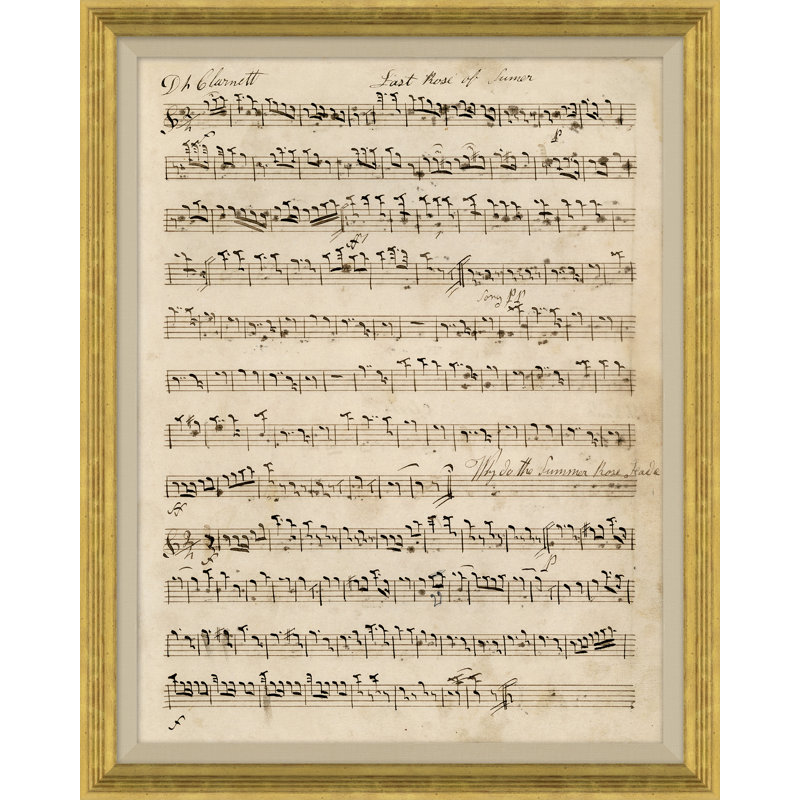 Dh Clarnett Last Rose of Sumer
P
Song PP
Why do the Summer Rose Fade
P